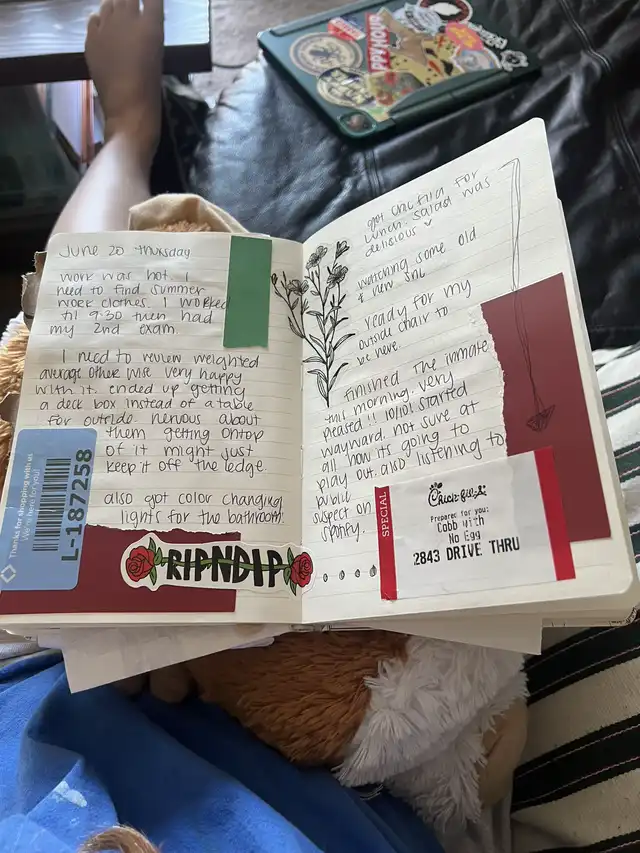 June 20 Thursday
work was hot. I
need to find summer
work clothes. I worked
til 9:30 then had
my 2nd exam.
I need to review weighted
average other wise very happy
with it. ended up getting
a deck box instead of a table
for outside. nervous about
them getting ontop
of it might just
keep it off the ledge
also got color changing
lights for the bathroom
Thanks for shopping with us
We're here for you!
L-187258
RIPNDIP
got chicfila for
lunch. salad was
delicious
watching some old
& new snl
ready for my
outside chair to
be here
finished The inmate
this morning. very
pleased!! 10/10! started
wayward. not sure at
all how its going to
play out. also listening to
public
suspect on
spotify.
SPECIAL
Chick-fil-A
Prepared for you:
Cobb with
No Egg
2843 DRIVE THRU
HAPPY HOUR